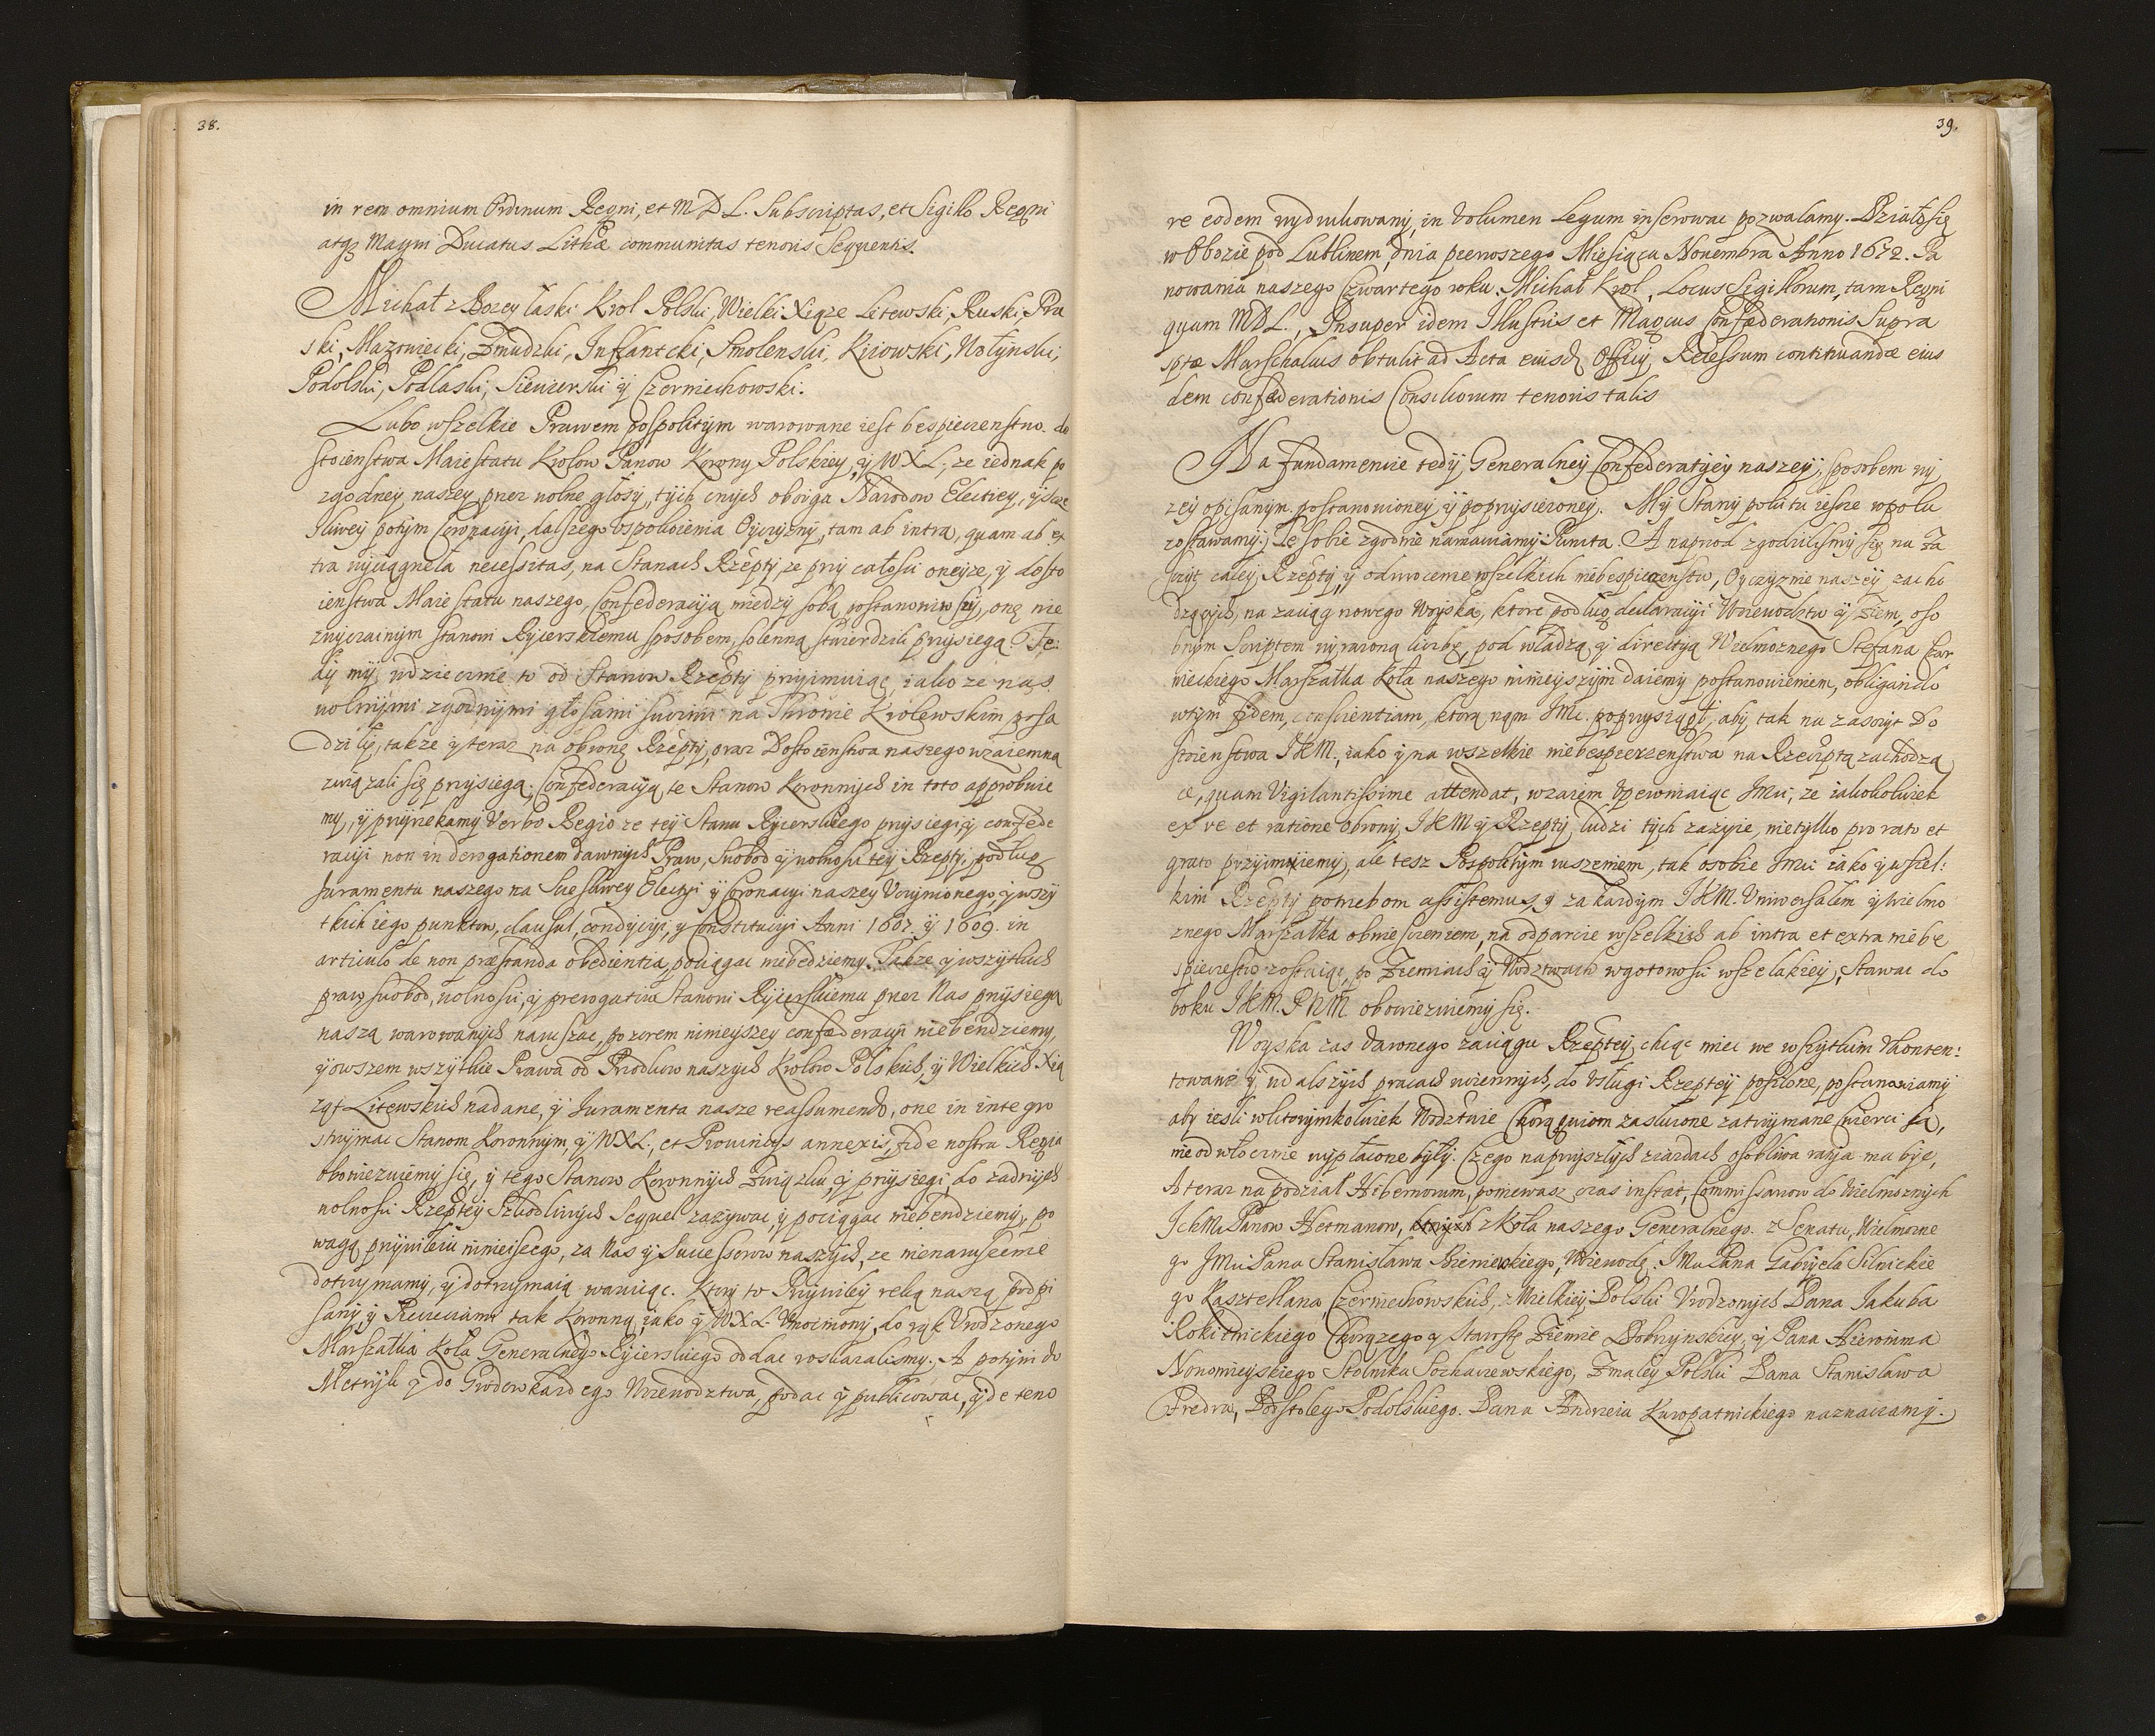 38.
in rem omnium Ordinum Regni, et M D L. Subscriptas, et Sigillo Regni
atq; Magni Ducatus Lithæ communitas tenoris Sequentis.
Michał z Bozey łaski Krol Polski, Wielki Xiąze Litewski, Ruski, Pru
ski, Mazowiecki, Zmudzki, Inflantcki, Smolenski, Kiiowski, Wołynski,
Podolski, Podlaski, Siewierski ÿ Czerniechowski.
Lubo wszelkie Prawem pospolitym warowane iest bespieczenstwo do
stoienstwa Maiestatu Krolow Panow Korony Polskiey, ÿ W X L. ze iednak po
zgodney naszey przez wolne głosy, tych cnych oboyga Narodow Electiey, ÿ szcze
sliwey potym Coronacyi, dalszego uspokoienia Oyczyzny, tam ab intra, quam ab ex
tra wyciągneła necessitas, na Stanach Rzepty, ze przy całosci oneyze, ÿ dosto
ienstwa Maiestatu naszego, Confederacyą miedzy sobą postanowiwszy, onę nie
zwyczainym stanowi Rycerskiemu sposobem, solenną stwierdzili przysiegą. Te
dy my wdziecznie to od Stanow Rzepty przyimuiąc, iako ze nas
wolnymi zgodnymi głosami swoimi na Thronie Krolewskim posa
dzili, takze ÿ teraz na obronę Rzepty, oraz Dostoienstwa naszego wzaiemną
związali się przysiegą, Confederacyą te Stanow Koronnych in toto approbuie
my, ÿ przyrzekamy Verbo Regio ze teÿ Stanu Rycerskiego przysiegi ÿ confede
racyi non in derogationem dawnych Praw, Swobod ÿ wolnosci teÿ Rzepty, podług
Juramentu naszego na Szczesliwey Electyi ÿ Coronacyi naszey Uczynionego, ÿ wszy
tkich iego punktow, clausul, condycyi, ÿ Constitucyi Anni 1607. ÿ 1609. in
articulo de non præstanda obedientia, pociągac niebedziemy. Takze ÿ wszytkich
praw swobod, wolnosci, ÿ prerogatiw Stanowi Rycerskiemu przez Nas przysiegą
naszą warowanych naruszac, pozorem ninieyszey confæderacyi niebendziemy,
ÿ owszem wszytkie Prawa od Przodkow naszych Krolow Polskich, ÿ Wielkich Xią
ząt Litewskich nadane, ÿ Juramenta nasze reassumendo, one in integro
strzymac Stanom Koronnym, ÿ W X L. et Provincijs annexis, fide nostra Regia
obowiezuiemy się, ÿ tego Stanow Koronnych Związku, ÿ przysiegi, do zadnych
wolnosci Rzeptey Szkodliwych Sequel zazywac ÿ pociągac niebendziemy, po
wagą przywileiu ninieiszego, za Nas ÿ Successorow naszych, ze nienaruszenie
dotrzymamy, ÿ dotrzymaią waruiąc. Ktory to Przywiley reką naszą podpi
sany, ÿ Pieczeciami tak Koronną, iako ÿ W X L. Umocniony, do rąk Urodzonego
Marszałka Koła Generalnego Rycerskiego oddac roskazalismy. A potym do
Metryk ÿ do Grodow kazdego Woiewodztwa, podac ÿ publicowac, ÿ de teno
39.
re eodem wydrukowany, in Volumen Legum inserowac pozwalamy. Działo się
w Obozie pod Lublinem, dnia pierwszego Miesiąca Novembra Anno 1672. Pa
nowania naszego Czwartego roku. Michał Krol, Locus Sigillorum, tam Regni
quam MDL., Insuper idem Illustris et Magcus Confæderationis Supra
sptæ Marschalcus obtulit ad Acta eiusd Officij, Recessum continuandæ eius
dem confæderationis Consiliorum tenoris talis
Na fundamencie tedy Generalney Confederatyey naszey, sposobem wy
zey opisanym postanowioney, ÿ poprzysiezoney. My Stany poki tu iesze w kołu
zostawamy. Te sobie zgodnie namawiamy Puncta. A naprzod zgodzilismy się na Za
szczyt całey Rzepty, ÿ odwrocenie wszelkich niebespieczenstw, Oyczyznie naszey zacho
dzących, na zaciąg nowego Woyska, ktore podług declaracyi Woiewodztw ÿ Ziem, oso
bnym Scriptem wyrazoną liczbę, pod władzą ÿ direktyą Wielmoznego Stefana Czar
nieckiego Marszałka Koła naszego ninieyszym daiemy postanowieniem, obligando
w tym fidem, conscientiam, ktorą nam Jmc. poprzysiągł, aby tak na zaszczyt Do
stoienstwa J K M., iako ÿ na wszelkie niebespieczenstwa na Rzeczptą zachodzą
ce, quam Vigilantissime attendat, wzaiem Upewniaiąc Jmci, ze iakokolwiek
ex re et ratione obrony J K M ÿ Rzepty ludzi tych zazyie, nietylko pro rato et
grato przyimuiemy, ale tesz Pospolitym ruszeniem, tak osobie Jmci iako ÿ wszel:
kim Rzepty potrzebom assistemus, ÿ za kazdym J K M. Uniwersałem ÿ Wielmo
znego Marszałka obwieszczeniem, na odparcie wszelkich ab intra et extra niebe
spieczestw zostaiąc, po Ziemiach ÿ Wodztwach w gotowosci wszelakiey, Stawac do
boku J K M. P N M obowiezuiemy się.
Woyska zas dawnego zaciągu Rzeptey, chcąc miec we wszytkim Ukonten:
towane ÿ w dalszych pracach woiennych, do Usługi Rzeptey posilone, postanawiamy
aby iesli w ktorymkolwiek Wodztwie Chorągwiom zasłuzone zatrzymane Cwierci są,
nieodwłocznie wypłacone były. Czego na przyszłych ziazdach osobliwa racya ma byc,
A teraz na podział Hibernorum, poniewasz czas instat, Commissarzow do Wielmoznych
IchMci Panow Hetmanow, z Koła naszego Generalnego. z Senatu, Wielmozne
go Jmci Pana Stanisława Bieniewskiego, Woiewodę. Jmci Pana Gabryela Silnickie
go Kasztellana Czerniechowskich, z Wielkiey Polski Urodzonych Pana Jakuba
Rokitnickiego Chorązego ÿ Starostę Ziemie Dobrzynskiey, ÿ Pana Hieronima
Nowomieyskiego Stolnika Sochaczewskiego, Z małey Polski Pana Stanisława
Fredra, Podstolego Podolskiego. Pana Andrzeia Kuropatnickiego naznaczamy.